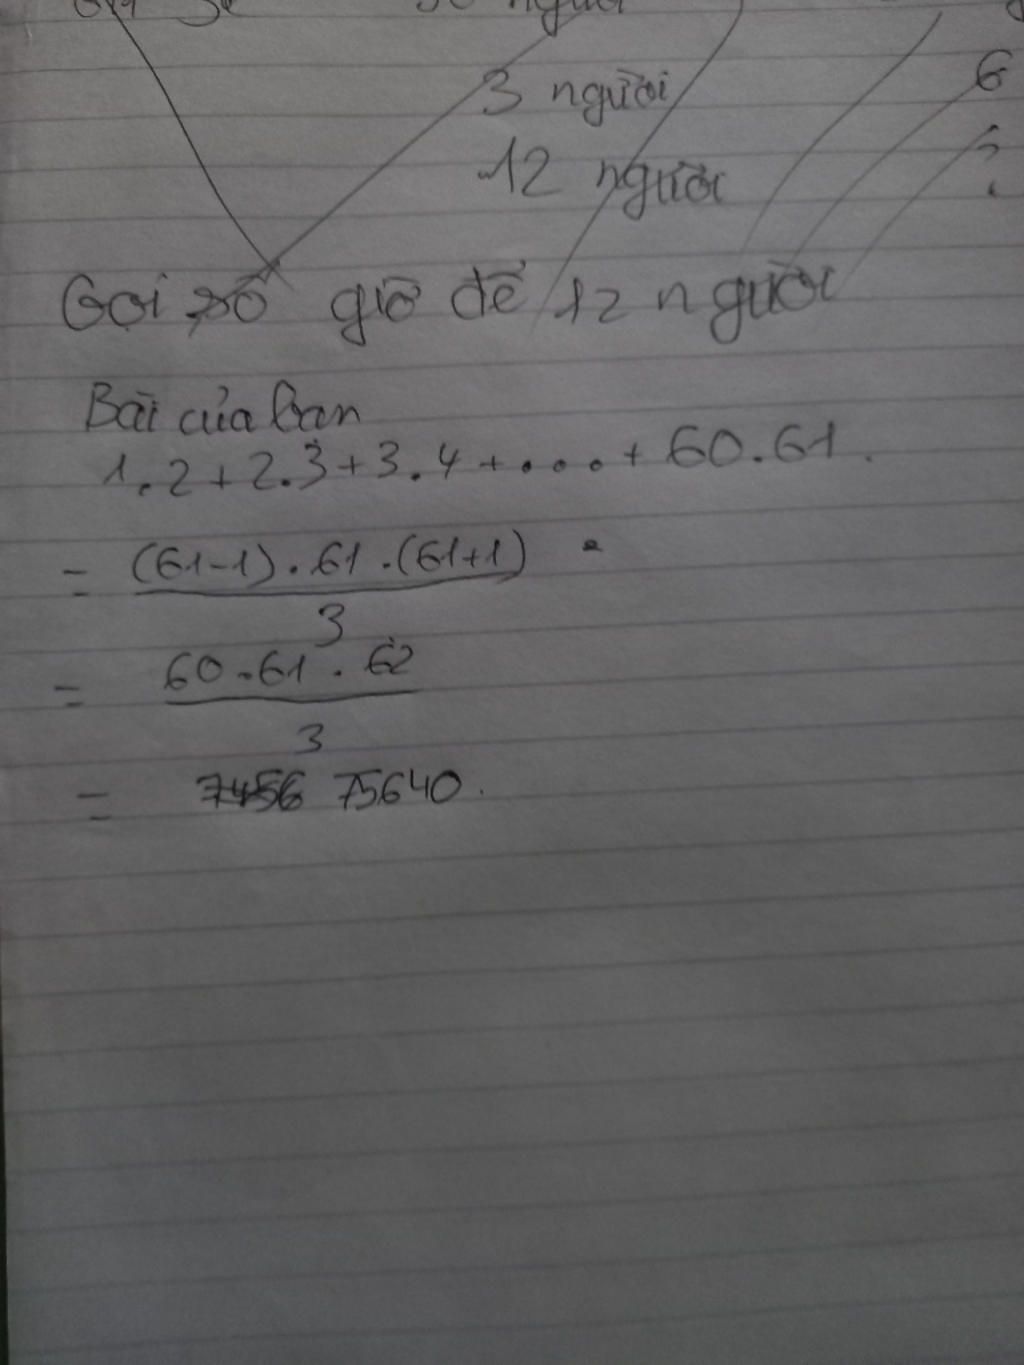 3 người
6
12 người
?
Gọi số giờ để 12 người
Bài của bạn
1.2+2.3+3.4+...+60.61.
= (61-1).61.(61+1)
3
= 60.61.62
3
= 7456 75640.